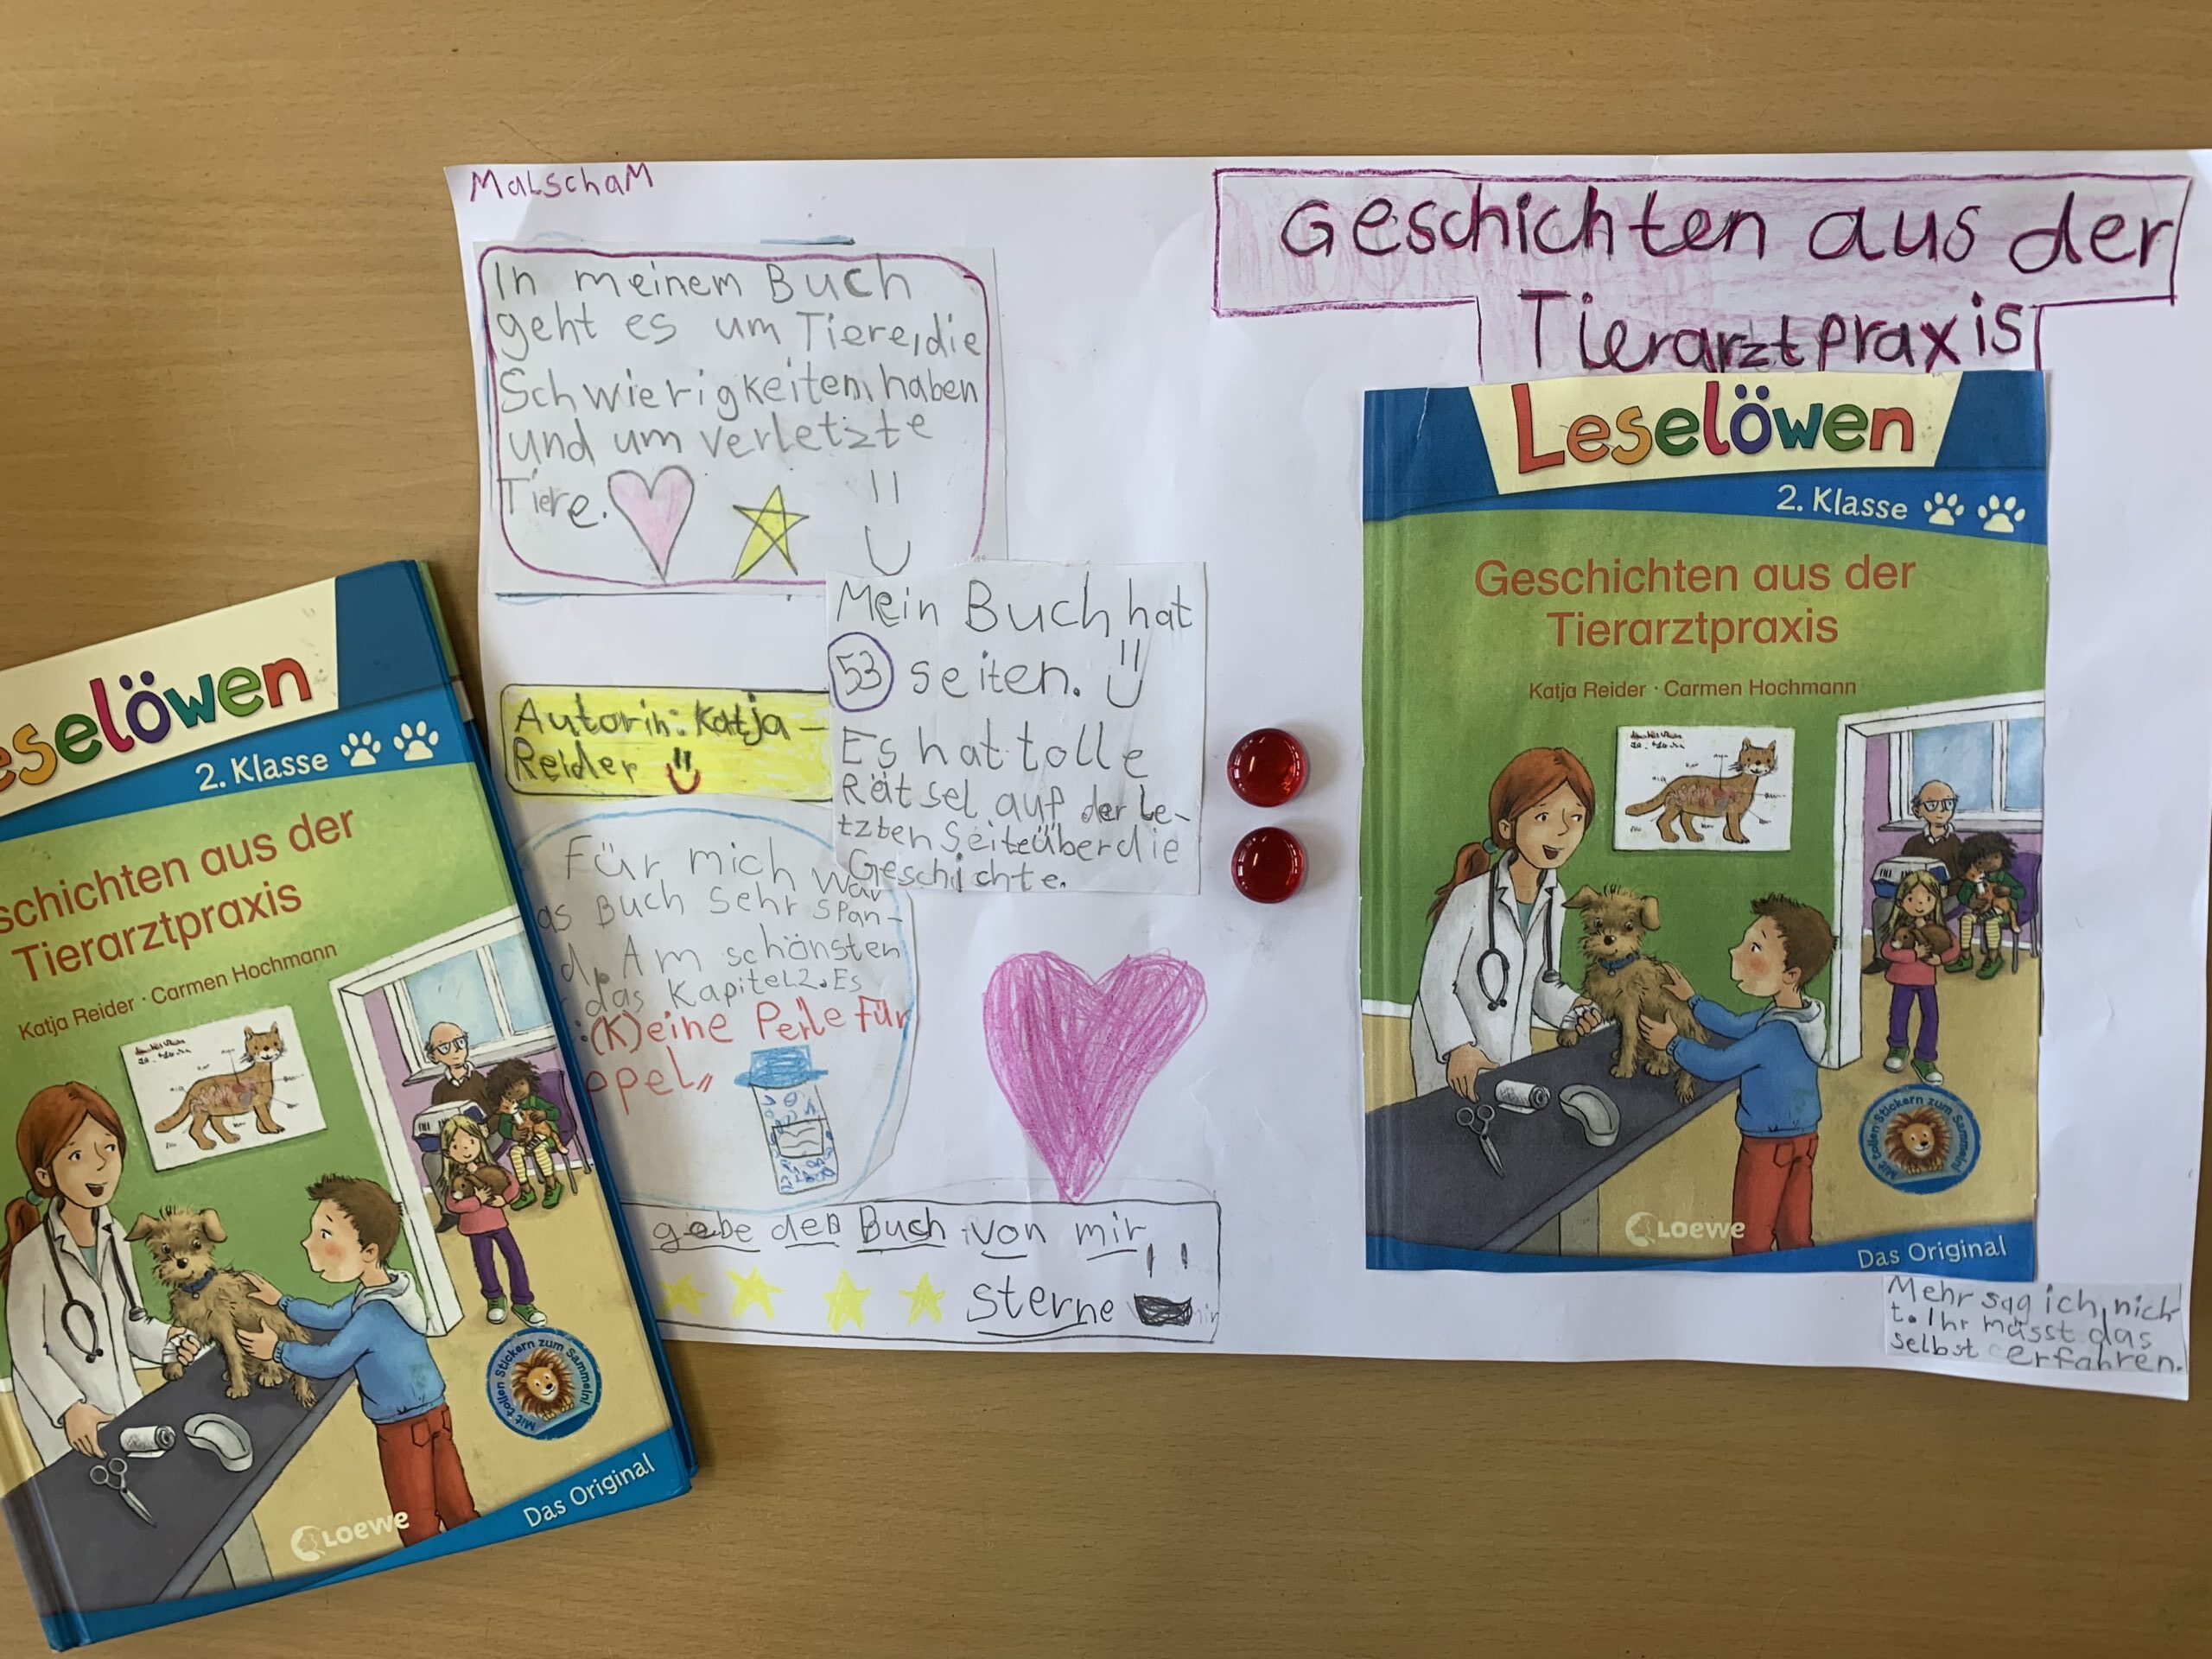 MaLschaM
Geschichten aus der
Tierarztpraxis
In meinem Buch
geht es um Tiere, die
Schwierigkeiten haben
und um verletzte
Tiere.
Mein Buch hat
53 seiten.
Es hat tolle
Rätsel auf der le-
tzten Seite über die
Geschichte.
Autorin: Katja-
Reider
Für mich war
as Buch sehr span-
d. Am schönsten
das Kapitel 2. Es
: (K)eine Perle Für
ppel"
gebe den Buch von mir
sterne
Leselöwen
2. Klasse
Geschichten aus der
Tierarztpraxis
Katja Reider · Carmen Hochmann
Mit tollen Stickern zum Sammeln!
Loewe
Das Original
Mehr sag ich nich-
t. Ihr müsst das
selbst erfahren.
eselöwen
2. Klasse
schichten aus der
Tierarztpraxis
Katja Reider · Carmen Hochmann
Mit tollen Stickern zum Sammeln!
Loewe
Das Original